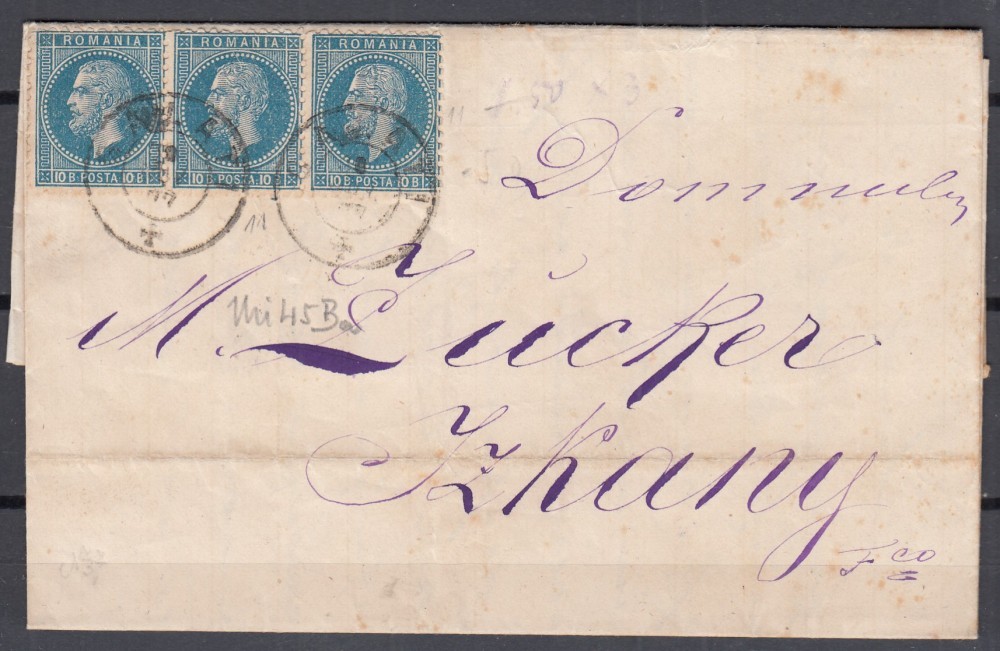 ROMANIA ROMANIA ROMANIA
10 B. POSTA 10 B. 10 B. POSTA 10 B. 10 B. POSTA 10 B.
11
Domnului
11
Mi 45 B
M. Zucker
Izkany
Fco